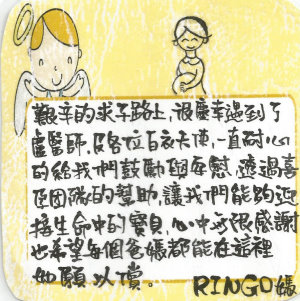 艱辛的求子路上,很慶幸遇到了
盧醫師,及各位白衣天使,一直耐心
的給我們鼓勵與安慰,透過喜
匡團隊的幫助,讓我們能夠迎
接生命中的寶貝,心中無限感謝
也希望每個爸媽都能在這裡
如願以償。 RINGO媽